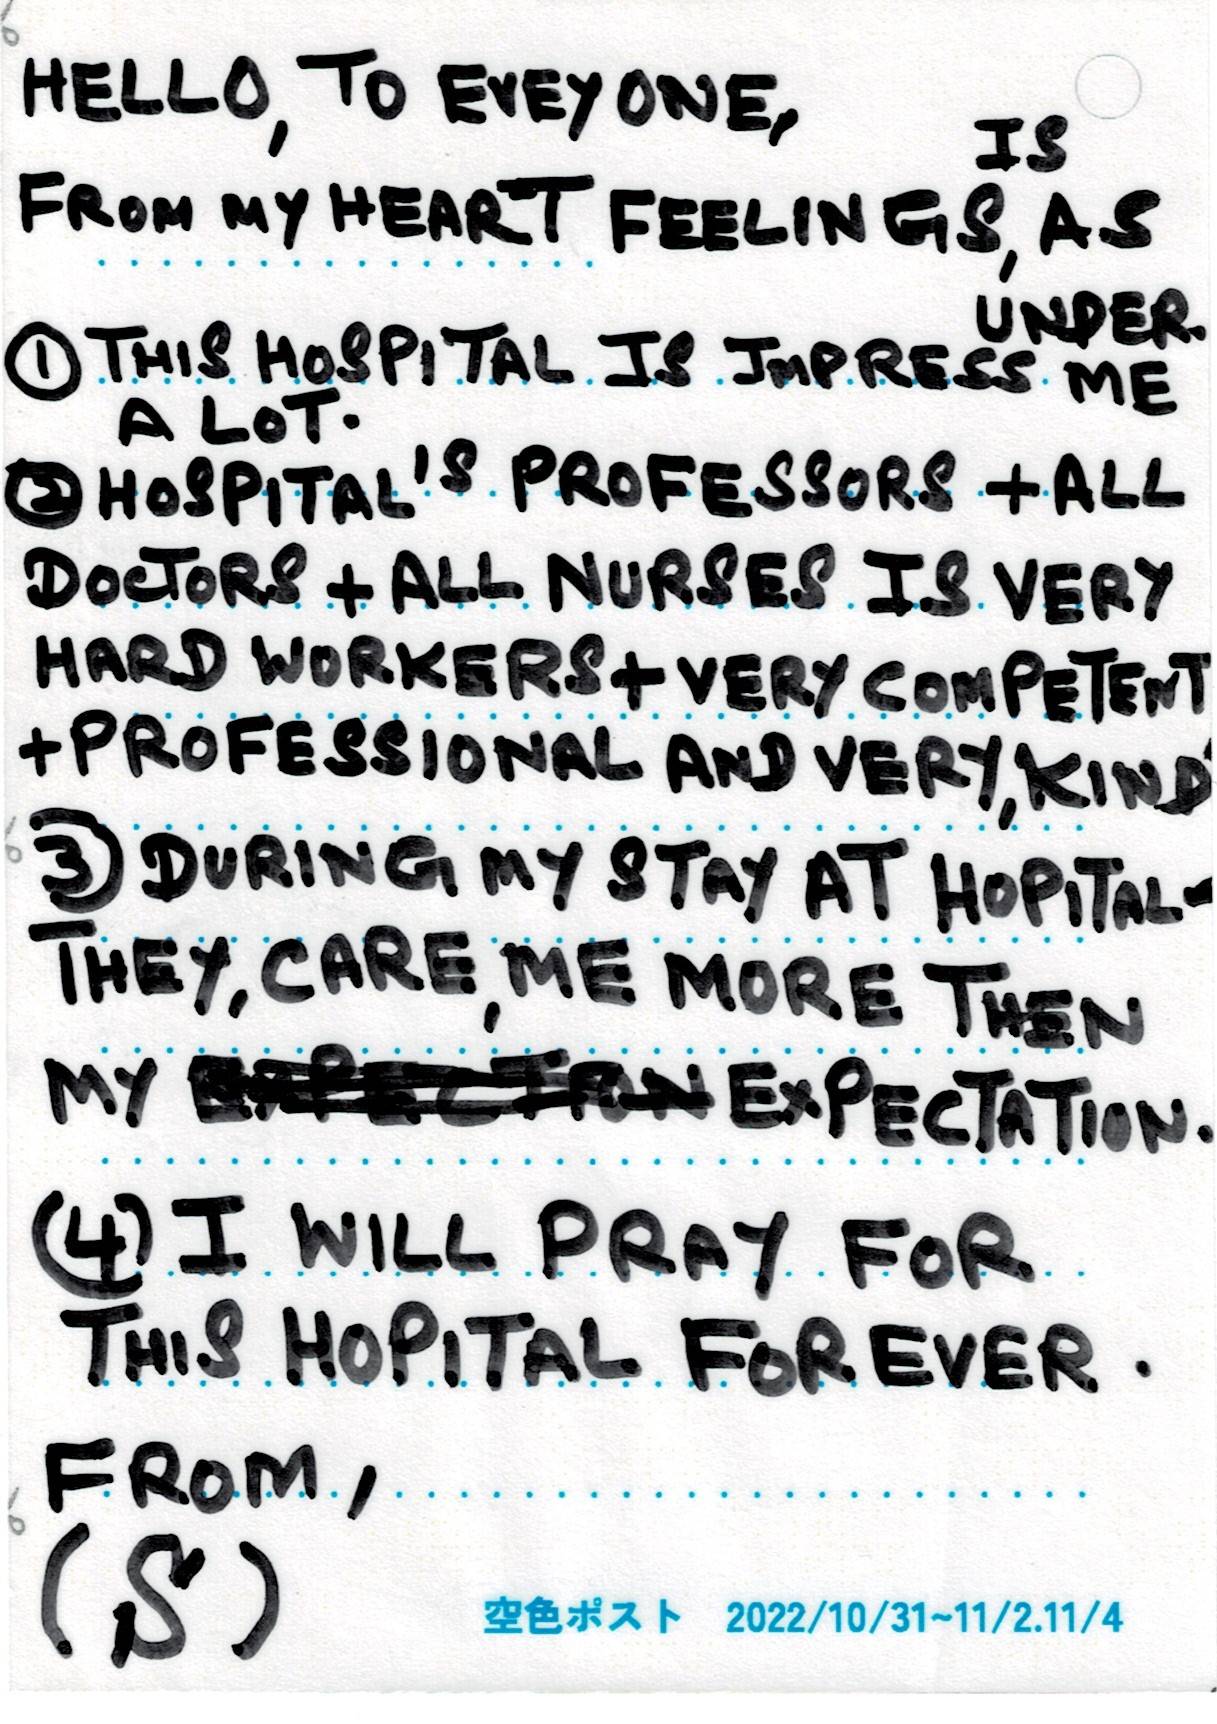 HELLO, TO EVEYONE,
FROM MY HEART FEELINGS, IS AS
UNDER.
① THIS HOSPITAL IS IMPRESS ME
A LOT.
② HOSPITAL'S PROFESSORS + ALL
DOCTORS + ALL NURSES IS VERY
HARD WORKERS + VERY COMPETENT
+ PROFESSIONAL AND VERY, KIND
③ DURING MY STAY AT HOPITAL-
THEY, CARE, ME MORE THEN
MY EXPECTATION.
(4) I WILL PRAY FOR
THIS HOPITAL FOREVER.
FROM,
(S)
空色ポスト 2022/10/31~11/2.11/4